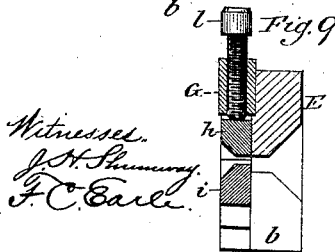 b
l Fig. 9
G
E
h
Witnesses.
J. H. Shumway.
F. C. Earle.
i
b